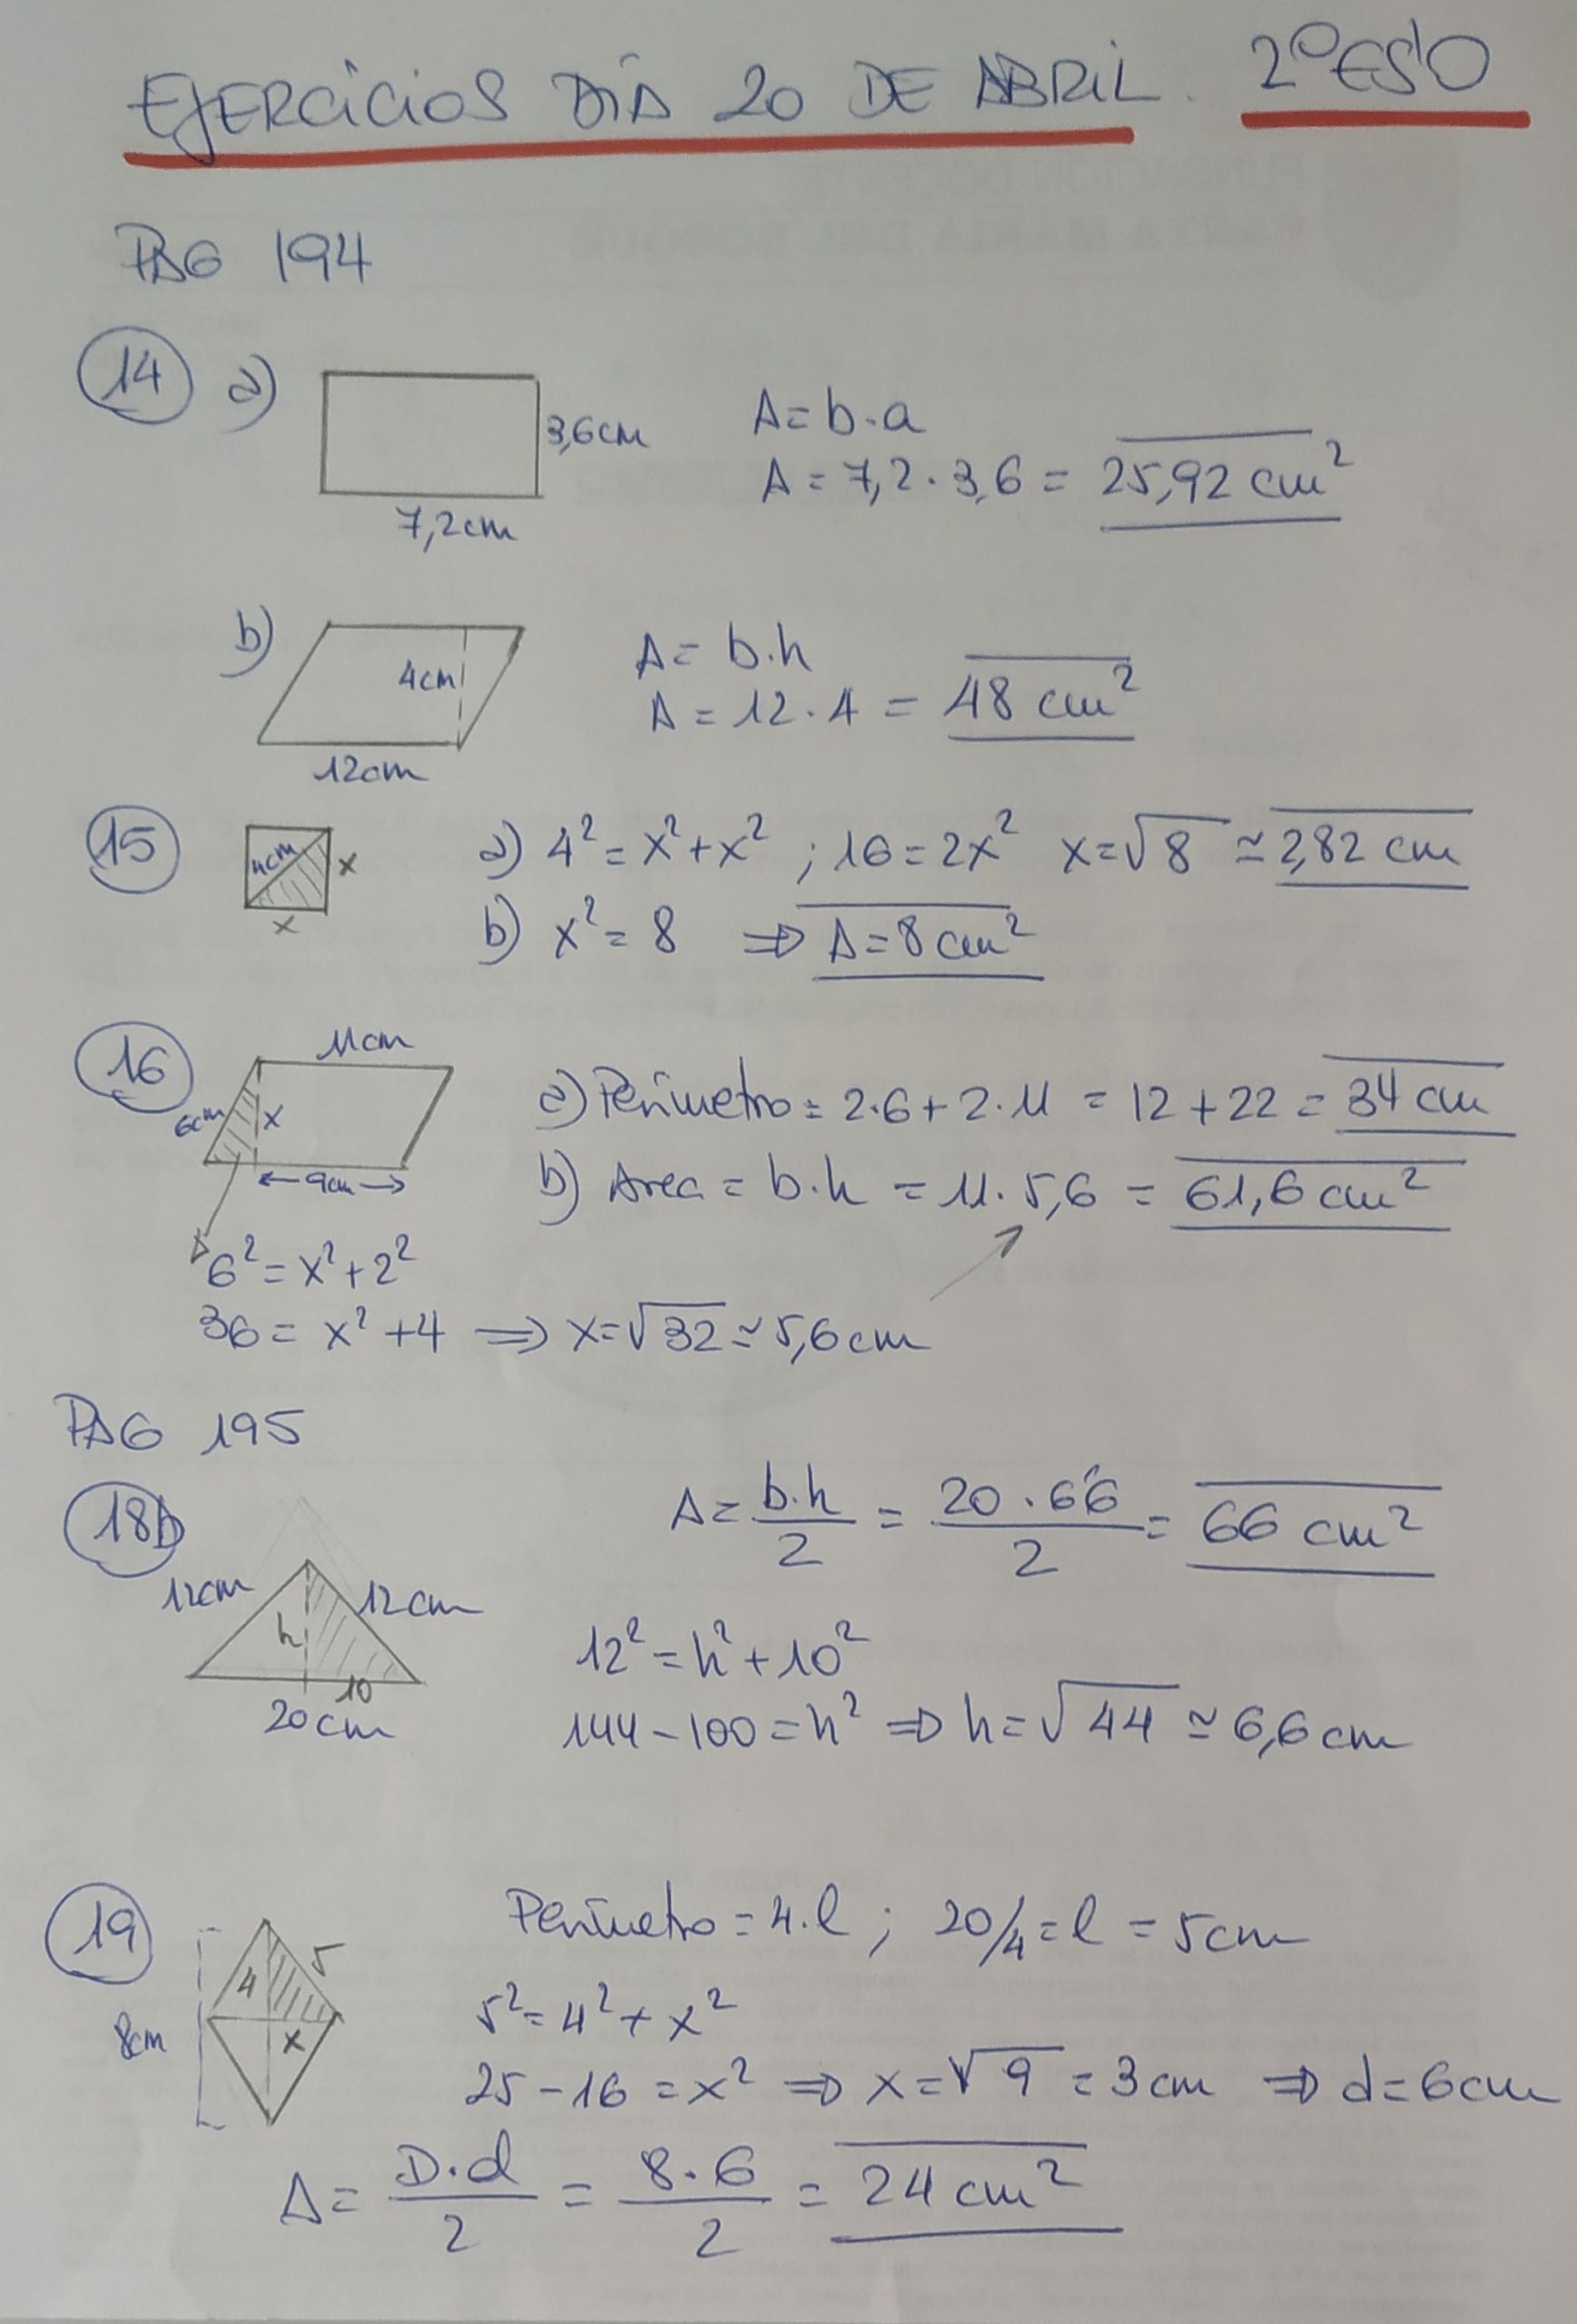 EJERCICIOS DÍA 20 DE ABRIL. 2º ESO
PAG 194
14 a) 3,6cm
7,2cm
A = b·a
A = 7,2 · 3,6 = 25,92 cm²
b) 4cm
12cm
A = b·h
A = 12 · 4 = 48 cm²
15 4cm x
x
a) 4² = x² + x² ; 16 = 2x² x = √8 ≃ 2,82 cm
b) x² = 8 ⇒ A = 8 cm²
16 11cm
6cm x
← 9cm →
a) Perímetro = 2·6 + 2·11 = 12 + 22 = 34 cm
b) Area = b·h = 11 · 5,6 = 61,6 cm²
6² = x² + 2²
36 = x² + 4 ⇒ x = √32 ≃ 5,6 cm
PAG 195
18b
12cm 12cm
h
10
20cm
A = b·h/2 = 20 · 6'6/2 = 66 cm²
12² = h² + 10²
144 - 100 = h² ⇒ h = √44 ≃ 6,6 cm
19
4 5
8cm x
Perímetro = 4·l ; 20/4 = l = 5cm
5² = 4² + x²
25 - 16 = x² ⇒ x = √9 = 3cm ⇒ d = 6cm
A = D·d/2 = 8·6/2 = 24 cm²